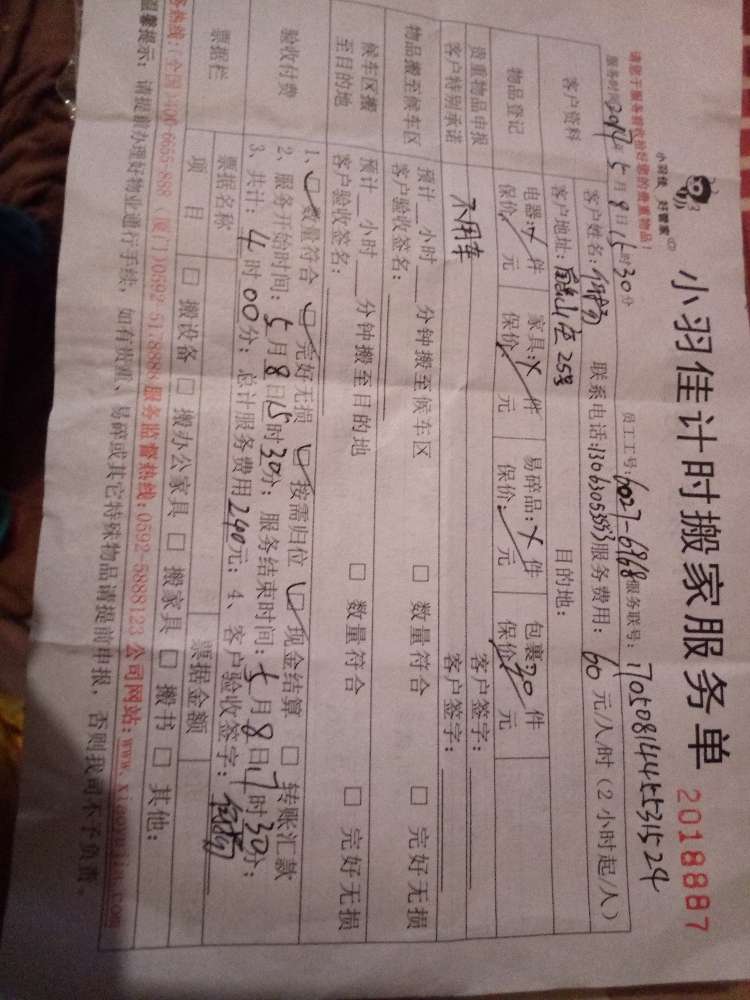 小羽佳 好管家
小羽佳计时搬家服务单 2018887
请您于服务前收拾好您的贵重物品！
服务时间：2017年5月8日15时30分 员工工号：6027-6968 服务联号：1705081445531524
客户资料
客户姓名： 联系电话：13063053553 服务费用：60元/人/时（2小时起/人）
客户地址： 25号 目的地：
物品登记
电器： 件 家具： 件 易碎品： 件 包裹20件
保价： 元 保价： 元 保价： 元 保价 元
贵重物品申报 客户签字：
客户特别承诺 不用车 客户签字：
物品搬至候车区
预计__小时__分钟搬至候车区 □ 数量符合 □ 完好无损
客户验收签名：
候车区搬至目的地
预计__小时__分钟搬至目的地 □ 数量符合 □ 完好无损
客户验收签名：
验收付费
1、☑数量符合 ☑完好无损 ☑按需归位 ☑现金结算 □ 转账汇款
2、服务开始时间：5月8日15时30分；服务结束时间：5月8日17时30分；
3、共计：4时00分；总计服务费用240元；4、客户验收签字：
票据栏
票据名称 票据金额
项目 □ 搬设备 □ 搬办公家具 □ 搬家具 □ 搬书 □ 其他：
务热线：(全国)400-6655-888 (厦门)0592-5188888 服务监督热线：0592-5888123 公司网站：www.xiaoyujia.com
温馨提示：请提前办理好物业通行手续，如有贵重、易碎或其它特殊物品请提前申报，否则我司不予负责。